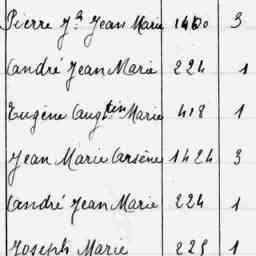 Pierre Jh Jean Marie 3
Candré Jean Marie 224 1
Eugène Augtin Marie 418 1
Jean Marie Arsène 1424 3
Candré Jean Marie 224 1
Joseph Marie 225 1